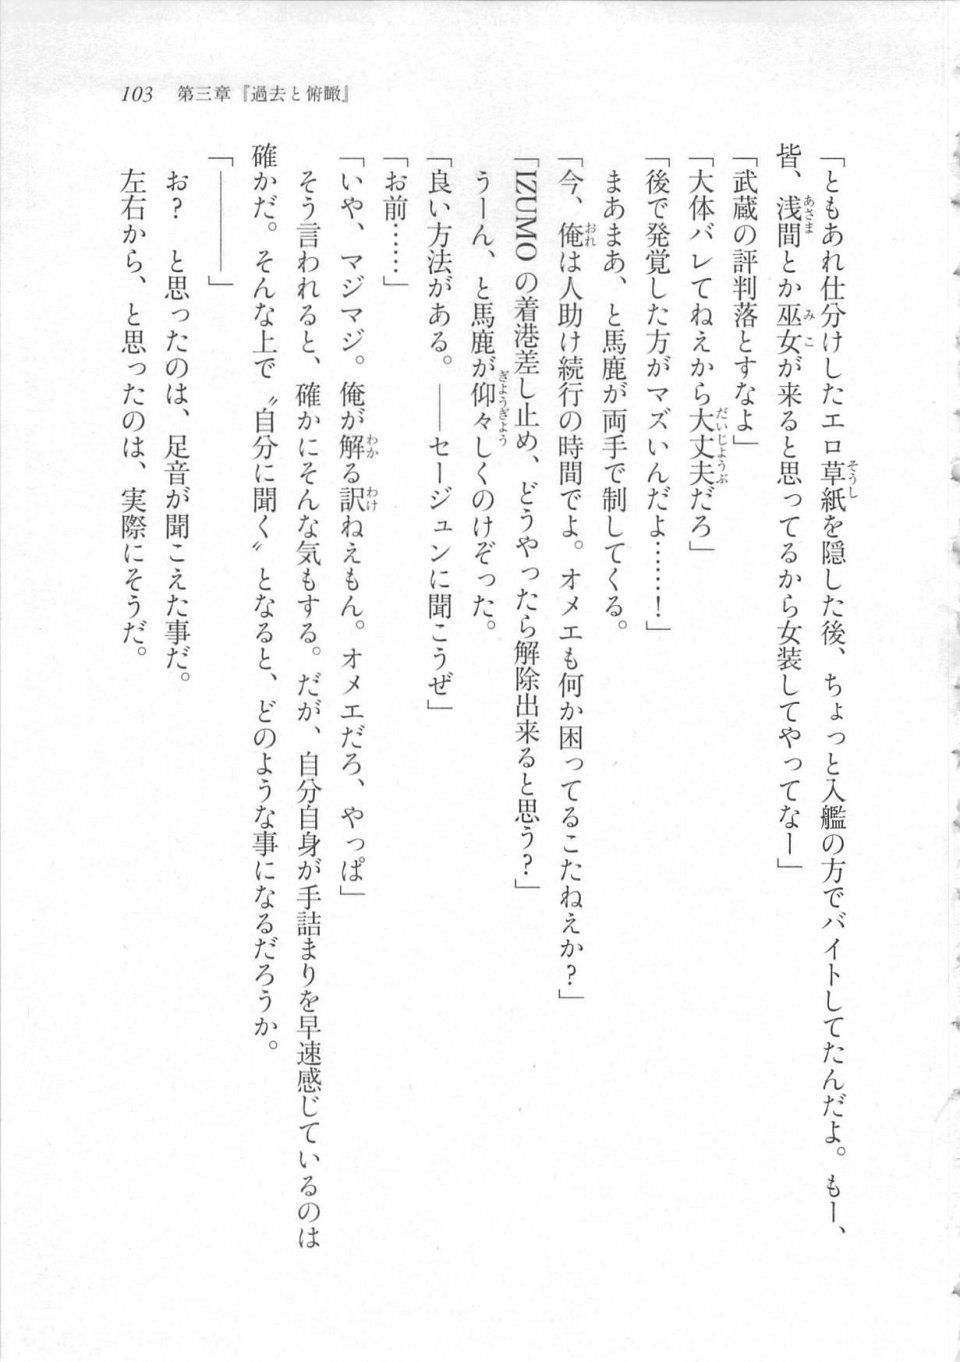 103　第三章『過去と俯瞰』
「ともあれ仕分けしたエロ草紙を隠した後、ちょっと入艦の方でバイトしてたんだよ。もー、
皆、浅間とか巫女が来ると思ってるから女装してやってなー」
「武蔵の評判落とすなよ」
「大体バレてねえから大丈夫だろ」
「後で発覚した方がマズいんだよ……！」
　まあまあ、と馬鹿が両手で制してくる。
「今、俺は人助け続行の時間でよ。オメエも何か困ってるこたねえか？」
「IZUMOの着港差し止め、どうやったら解除出来ると思う？」
　うーん、と馬鹿が仰々しくのけぞった。
「良い方法がある。――セージュンに聞こうぜ」
「お前……」
「いや、マジマジ。俺が解る訳ねえもん。オメエだろ、やっぱ」
　そう言われると、確かにそんな気もする。だが、自分自身が手詰まりを早速感じているのは
確かだ。そんな上で〝自分に聞く〟となると、どのような事になるだろうか。
「――――」
　お？　と思ったのは、足音が聞こえた事だ。
　左右から、と思ったのは、実際にそうだ。